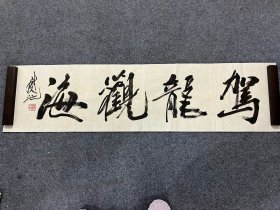 駕龍觀海